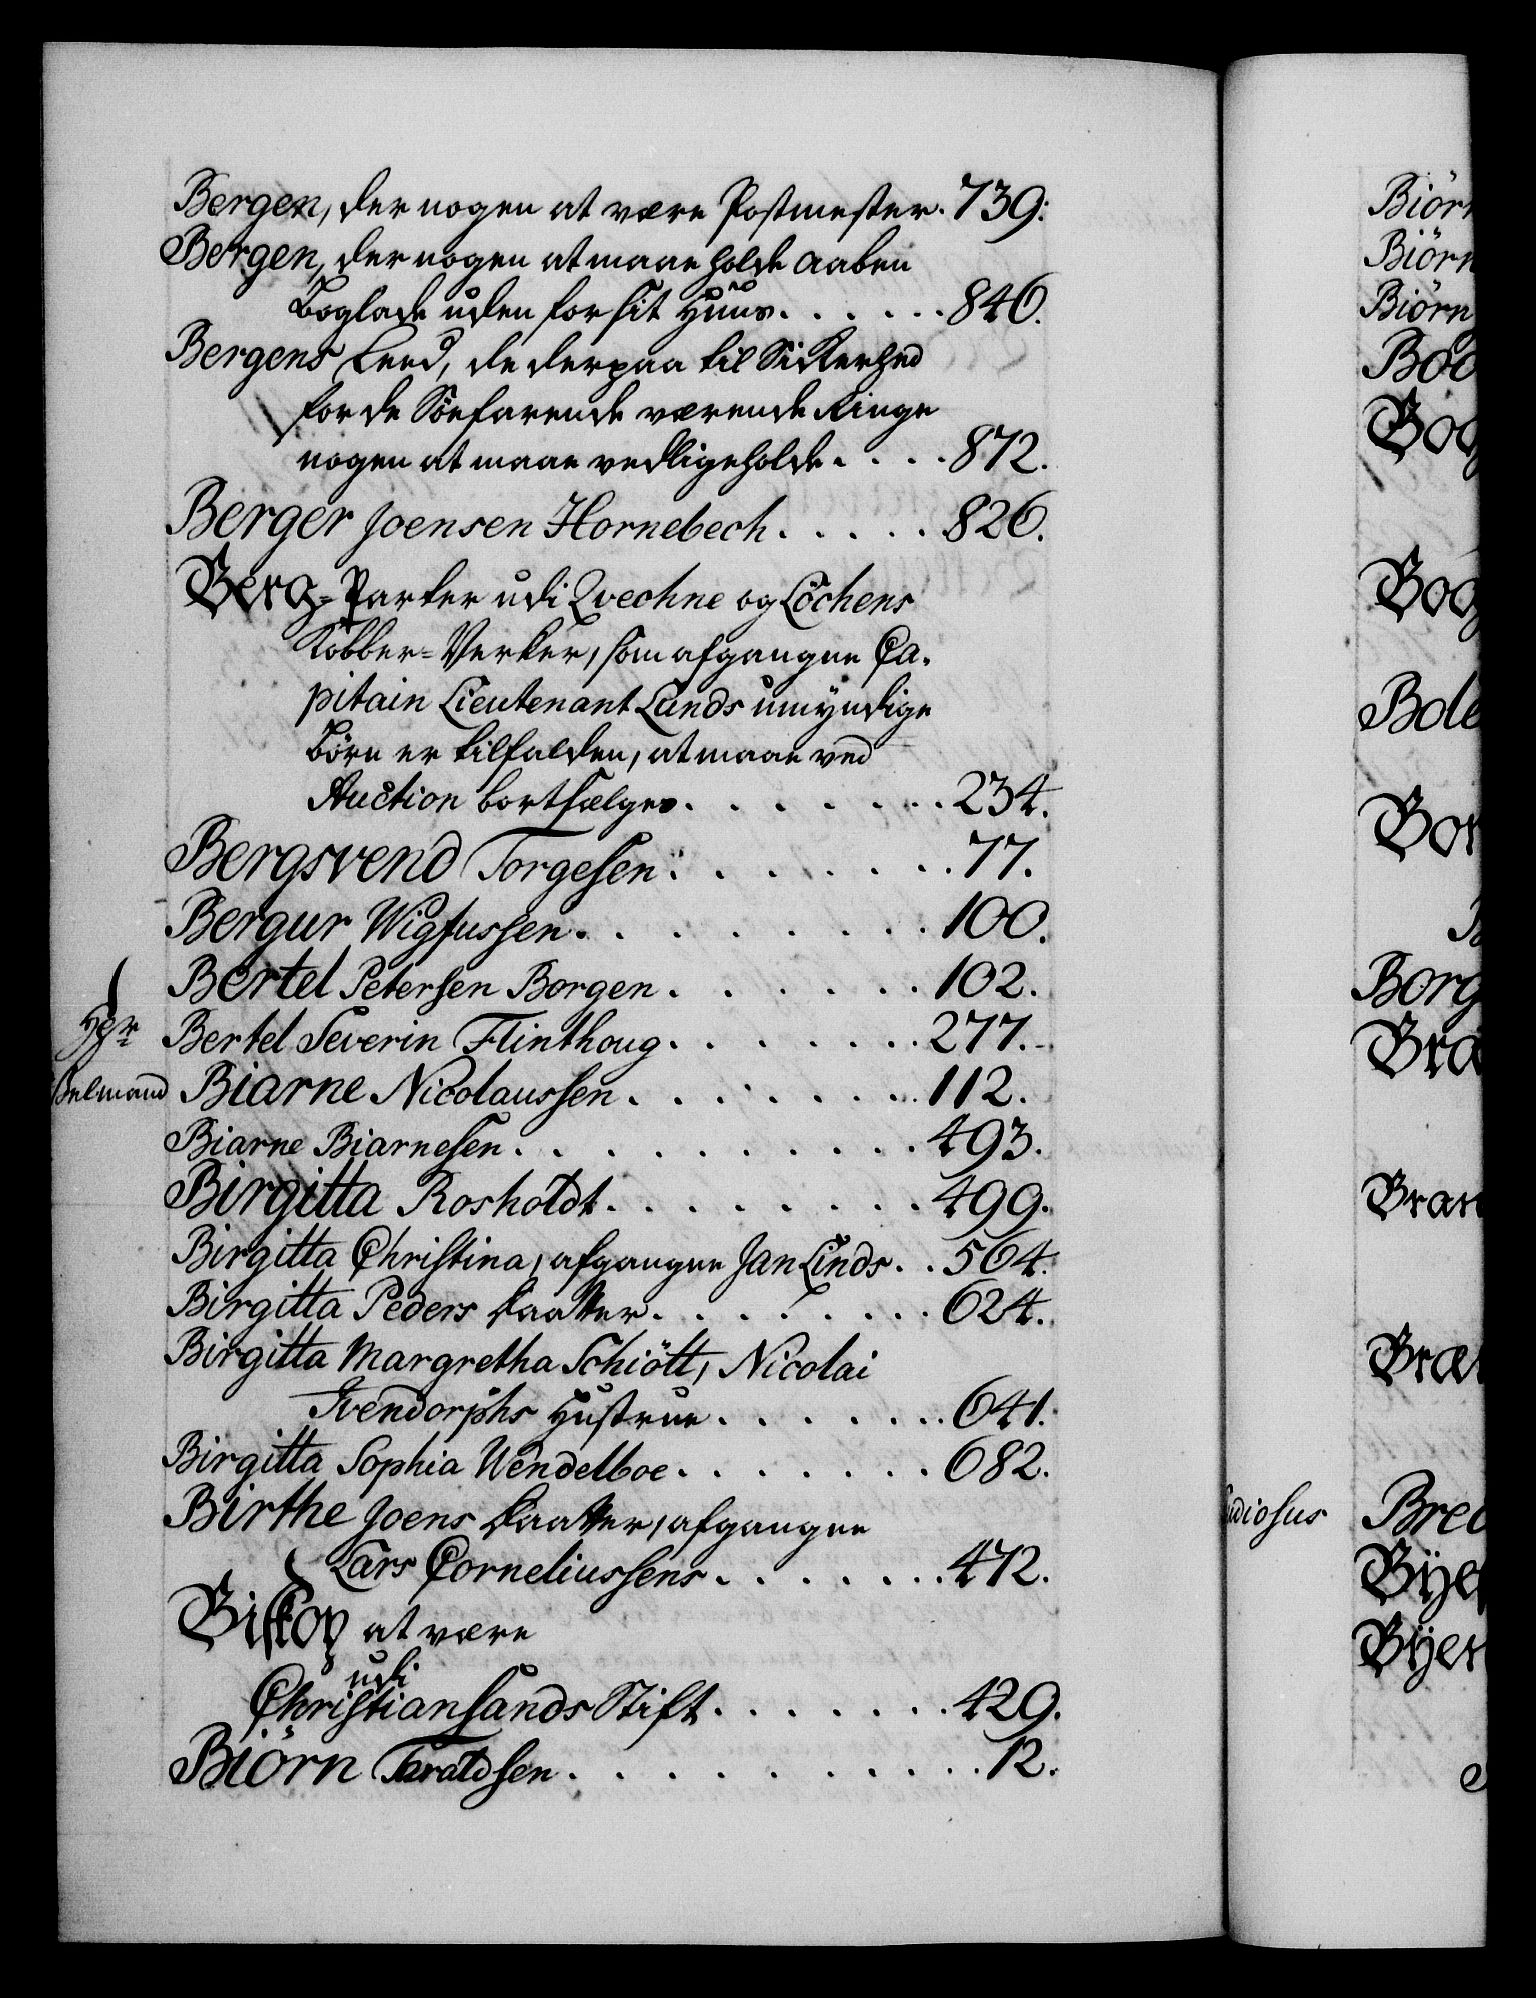 Bergen, der nogen at være Postmester. 739.
Bergen, der nogen at maae holde aaben
Boglade uden for sit Huus. . . . . . 846.
Bergens Leed, de derpaa til Sickerhed
for de Söefarende værende Ringe
nogen at maae vedligeholde. . . . 872.
Berger Joensen Hornebech. . . . . 826.
Berg-Parter udi Qvechne og Löchens
Kobber-Verker, som afgangne Ca-
pitain Lieutenant Lunds umÿndige
Börn er tilfalden, at maae ved
Auction bortsælges. . . . . . . 234.
Bergsvend Torgesen. . . . . . . 77.
Bergur Wigfussen. . . . . . . . 100.
Bertel Petersen Borgen. . . . . . 102.
Hr Bertel Severin Flinthoug. . . . . . 277.
Belmand Biarne Nicolaussen. . . . . . . 112.
Biarne Biarnesen. . . . . . . . . 493.
Birgitta Rosholdt. . . . . . . . 499.
Birgitta Christina, afgangne Jan Linds. . 564.
Birgitta Peders Daatter. . . . . . . 624.
Birgitta Margretha Schiött, Nicolai
Svendorphs Hustrue. . . . . . 641.
Birgitta Sophia Wendelboe. . . . . . 682.
Birthe Joens Daatter, afgangne
Lars Corneliussens. . . . . . . 472.
Biskop at være
udi
Christiansands Stift. . . . . . . 429.
Biörn Taraldsen. . . . . . . . . . 12.
Biörn
Biörn
Biörn
Boo
Bog
Bog
Bole
Bor
Borg
Bra
Bran
Bræ
udiosus Bred
Bÿe
Bÿer